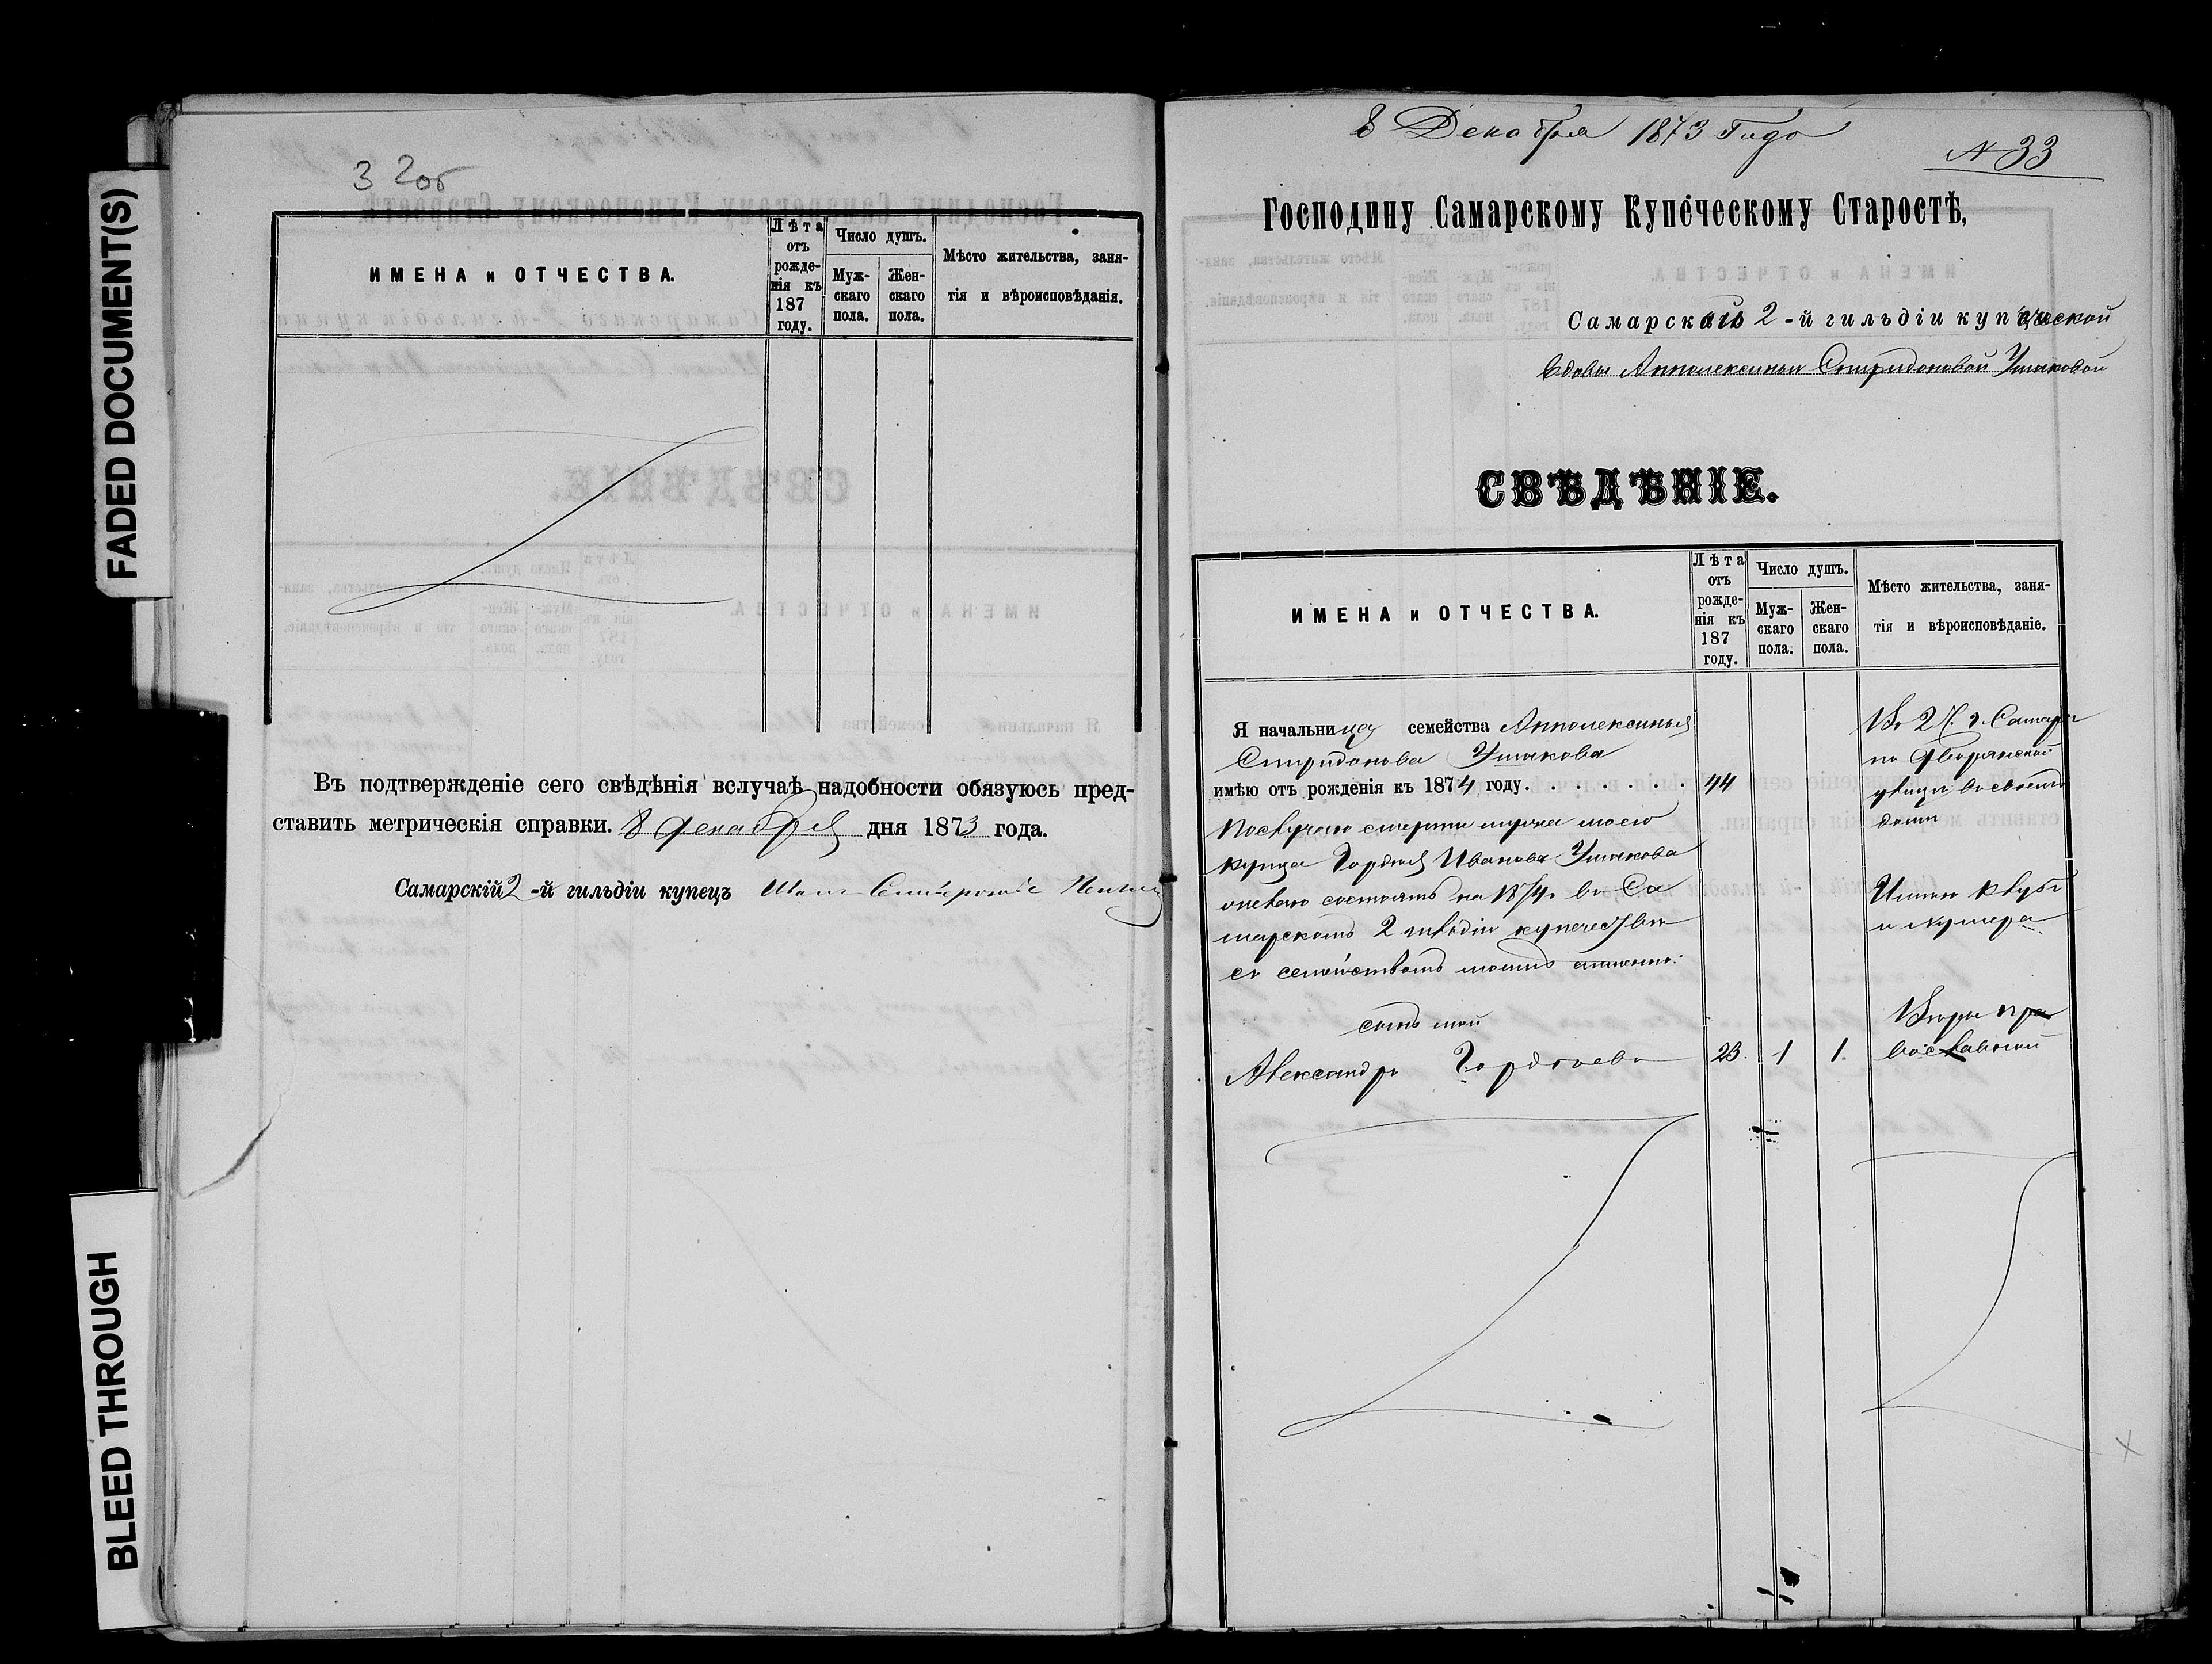 FADED DOCUMENT(S)
BLEED THROUGH
32об
ИМЕНА и ОТЧЕСТВА.
Лѣта отъ рожденія къ 187 году.
Число душъ.
Мужскаго пола.
Женскаго пола.
Мѣсто жительства, заня-
тія и вѣроисповѣданія.
Въ подтвержденіе сего свѣдѣнія вслучаѣ надобности обязуюсь пред-
ставить метрическія справки. 8 декабря дня 1873 года.
Самарскій 2-й гильдіи купецъ
8 Декабря 1873 Года
№ 33
Господину Самарскому Купеческому Старостѣ,
Самарской 2-й гильдіи купеческой
вдовы Апполекинаріи Спиридоновой Ушаковой
СВѢДѢНІЕ.
ИМЕНА и ОТЧЕСТВА.
Лѣта
отъ
рожде-
нія къ
187
году.
Число душъ.
Муж-
скаго
пола.
Жен-
скаго
пола.
Мѣсто жительства, заня-
тія и вѣроисповѣданіе.
Я начальница семейства
Спиридонова Ушакова
имѣю отъ рожденія къ 1874 году. . . . . . . . 44
Послучаю смерти мужа моего
купца Гордея Иванова Ушакова
желаю состоять на 1874 въ Са
марскомъ 2 гильдіи купечествѣ
съ семействомъ моимъ
сынъ мой
Александръ Гордѣевъ 23. 1 1.
Во 2 Ч. г. Самары
по Дворянской
улицѣ въ своемъ
домѣ
Имѣю клубъ
и нумера
Вѣры пра
вославной